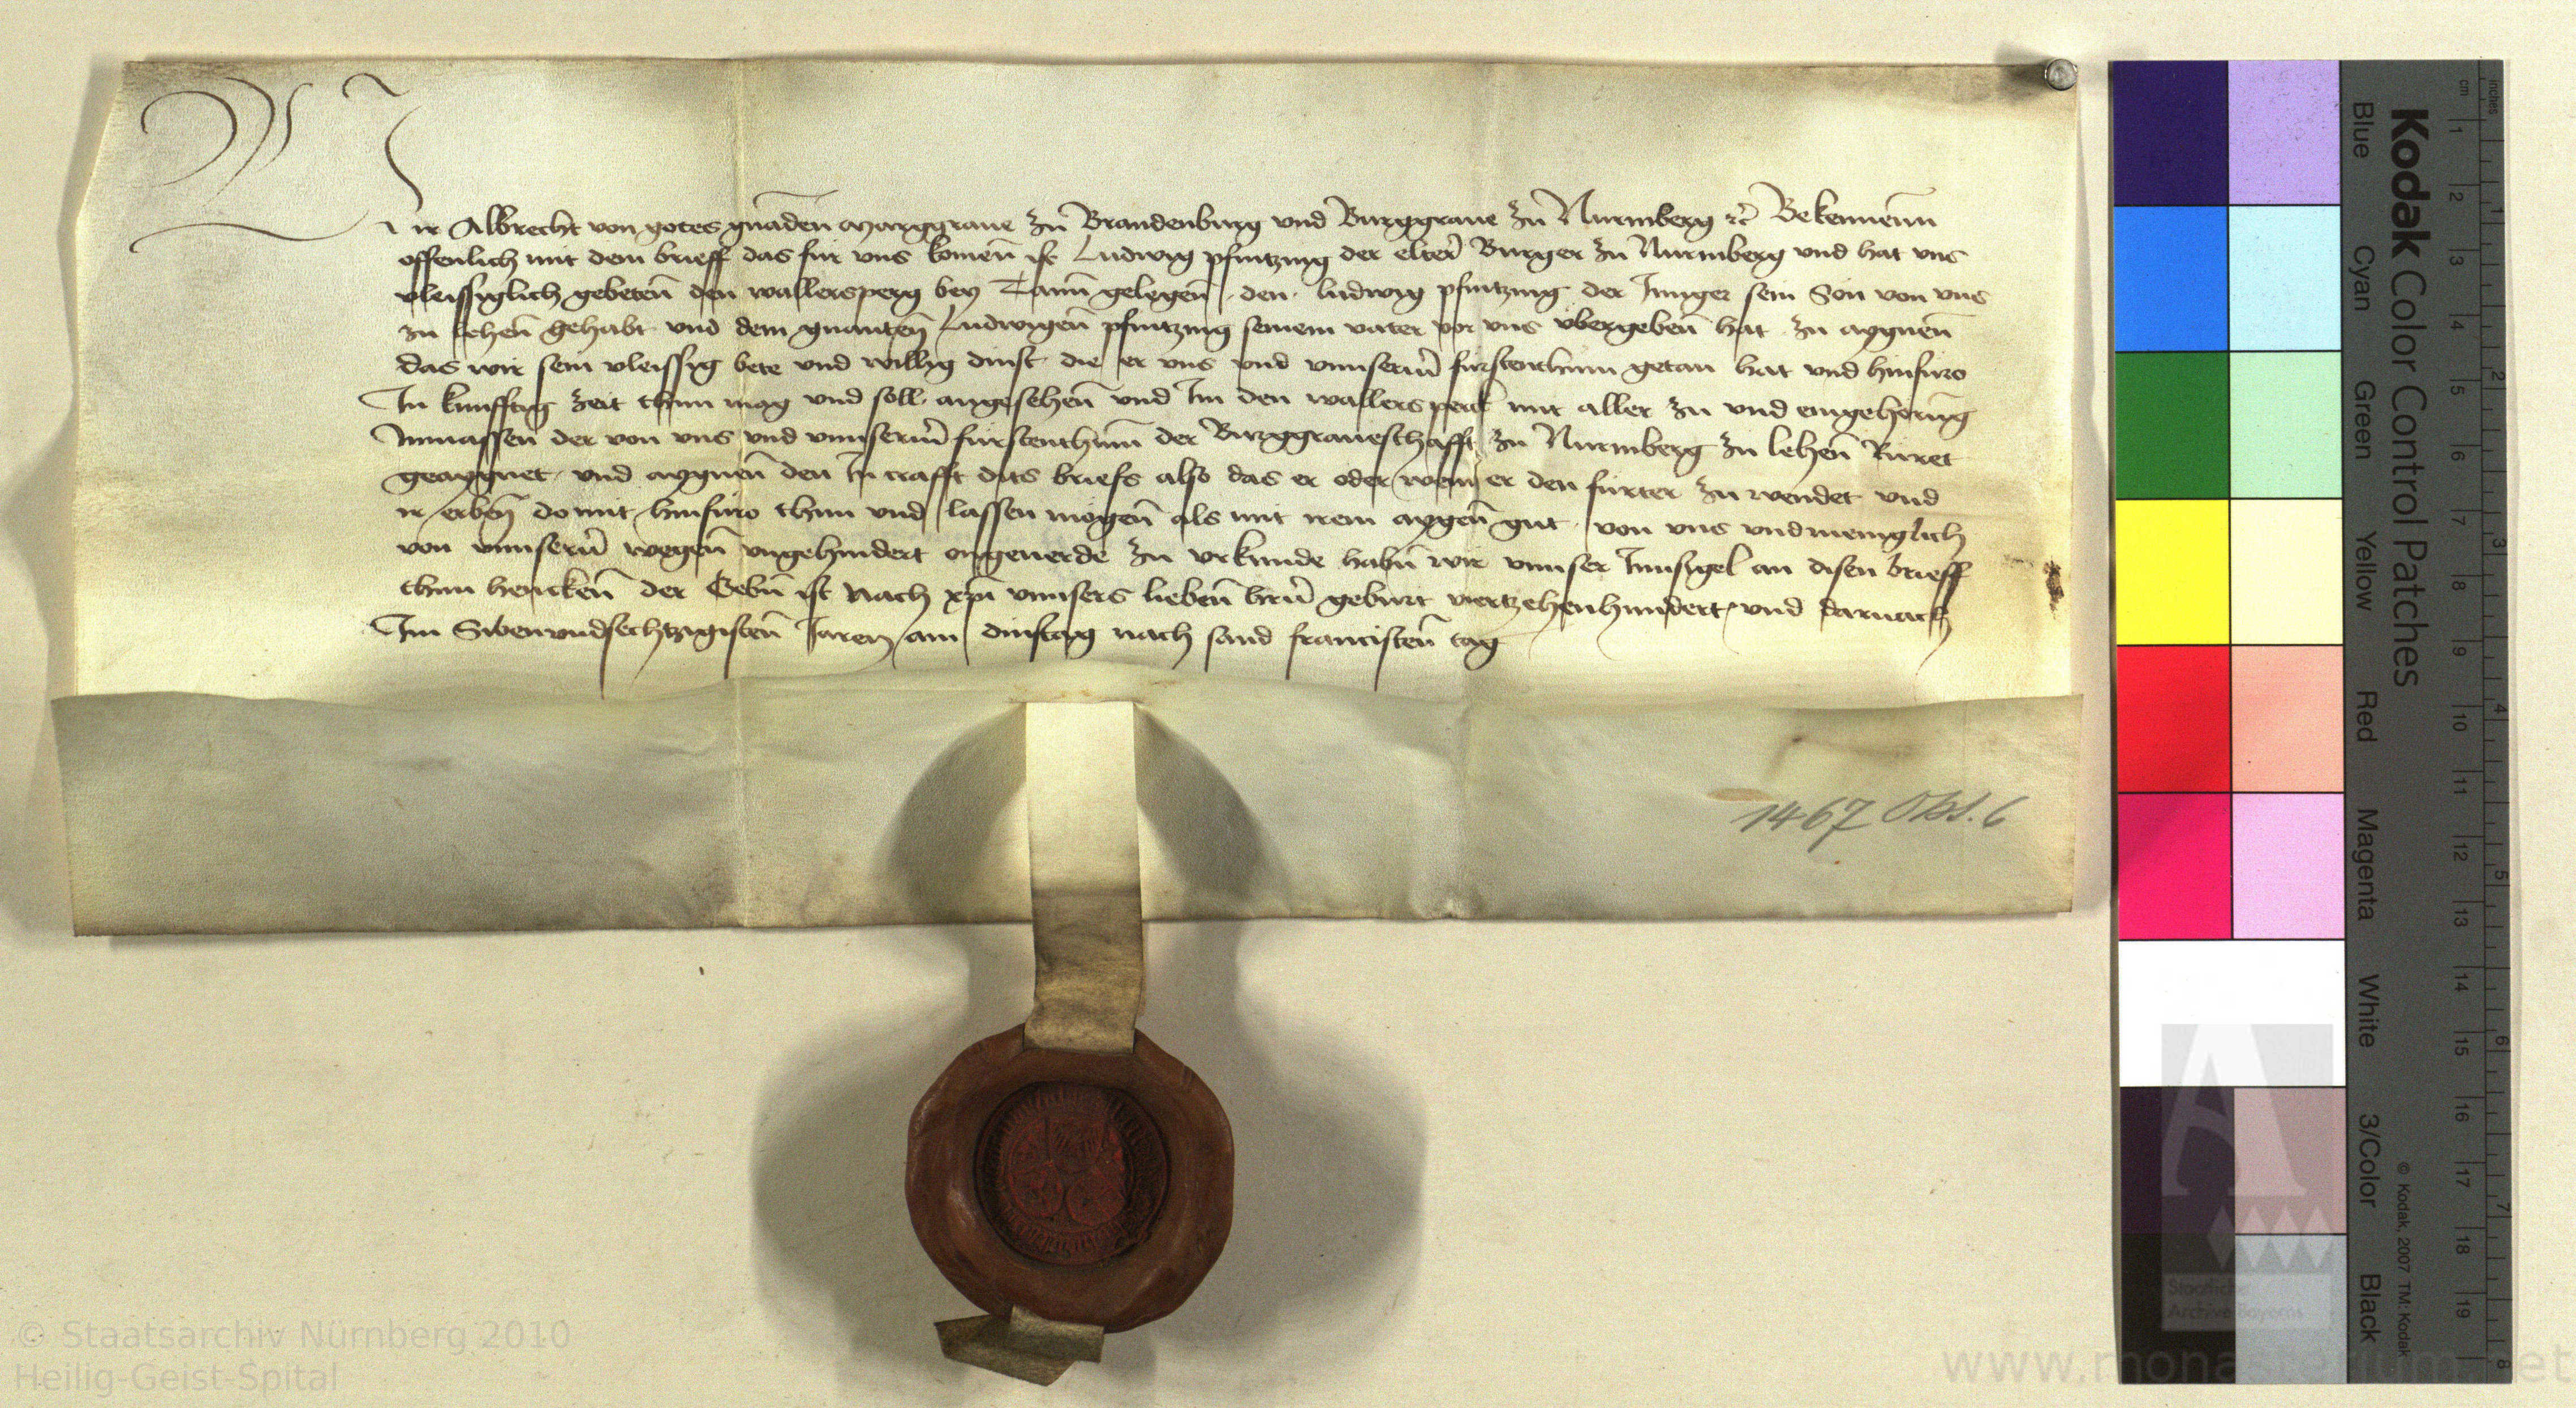 Wir Albrecht von gotes gnaden Marggraue zu Brandenburg und Burggraue zu Nurmberg etc Bekennenn
offenlich mit dem brieff das fur vns komen ist Ludwig pfintzing der elter Burger zu Nurmberg vnd hat vns
vleissiglich gebeten den wallersperg bey Tann gelegen den ludwig pfintzing der Junger sein Son von vns
zu lehen gehabt vnd dem gnanten Ludwigen pfintzing seinem vater vor vns vbergeben hat zu aygnen
das wir sein vleissig bete vnd willig dinst die er vns vnd vnnserm furstenthum getan hat vnd hinfuro
In kunfftig zeit thun mog vnd soll angesehen vnd Im den wallersperg mit aller zu vnd eingehorung
Inmassen der von vns vnd vnnserm furstenthumm der Burggraueschafft zu Nurmberg zu lehen Ruret
geaygnet vnd aygnen den In crafft dits briefs also das er oder wem er den furter zu wendet vnd
ir erben domit hinfuro thun vnd lassen mogen als mit irem aygen gut von vns vnd meniglich
von vnnsern wegen vngehindert ongeuerde zu vrkunde habn wir vnnser Innsigel an disen brieff
thun hencken der Gebn ist nach xpi vnnsers lieben hrn geburt viertzehenhundert vnd darnach
Im Sibenvndsechtzigisten Jaren am dinstag nach sand francisten tag
1467 Okt. 6
Kodak Color Control Patches
Blue Cyan Green Yellow Red Magenta White 3/Color Black
© Kodak, 2007 TM: Kodak
cm 1 2 3 4 5 6 7 8 9 10 11 12 13 14 15 16 17 18 19
inches 1 2 3 4 5 6 7 8
Staatliche
Archive Bayerns
© Staatsarchiv Nürnberg 2010
Heilig-Geist-Spital
www.monasterium.net